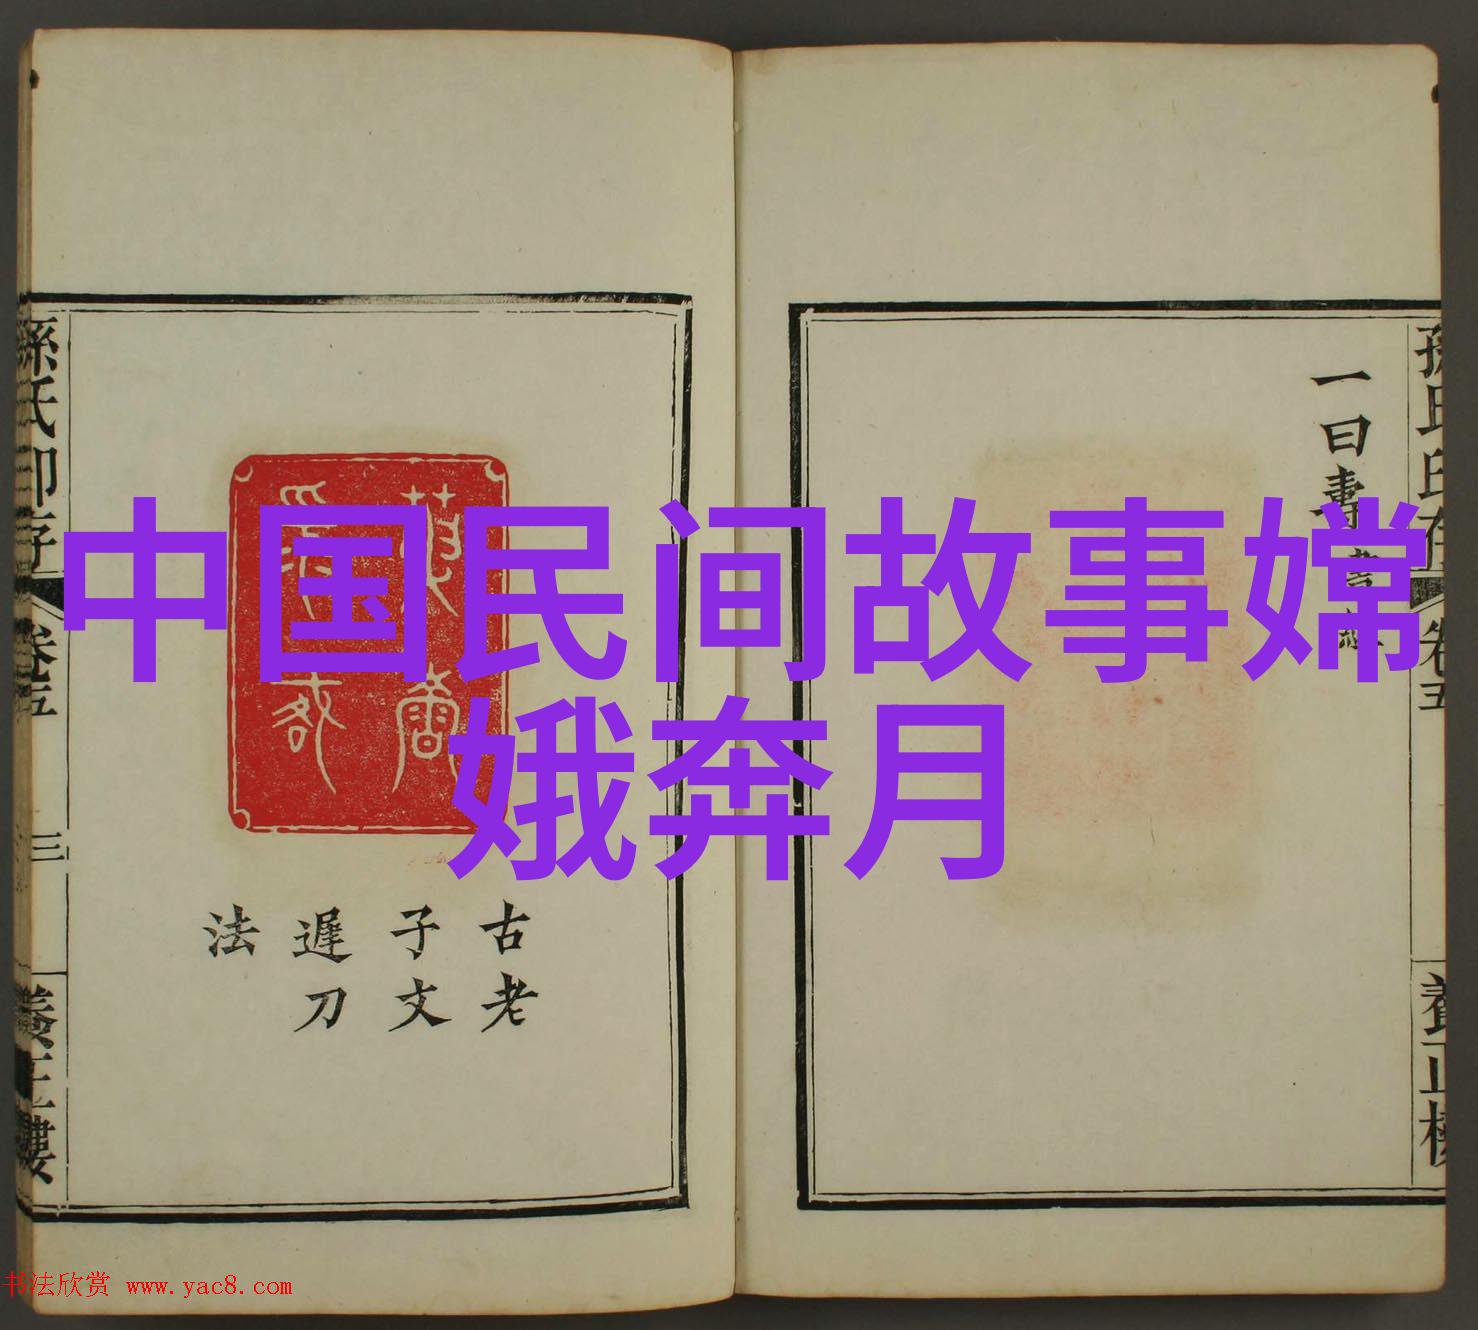 中国民间故事嫦
娥奔月
一曰壽
卷五
養正樓
孫氏印存
卷五
三
養正樓
古老
子文
遲刀
法
书法欣赏 www.yac8.com